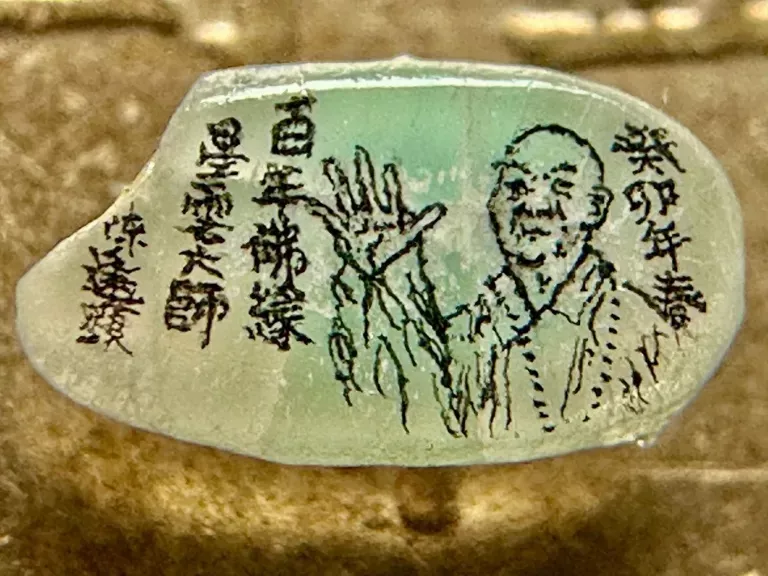 癸卯年春
百年佛緣
星雲大師
陳逢顯